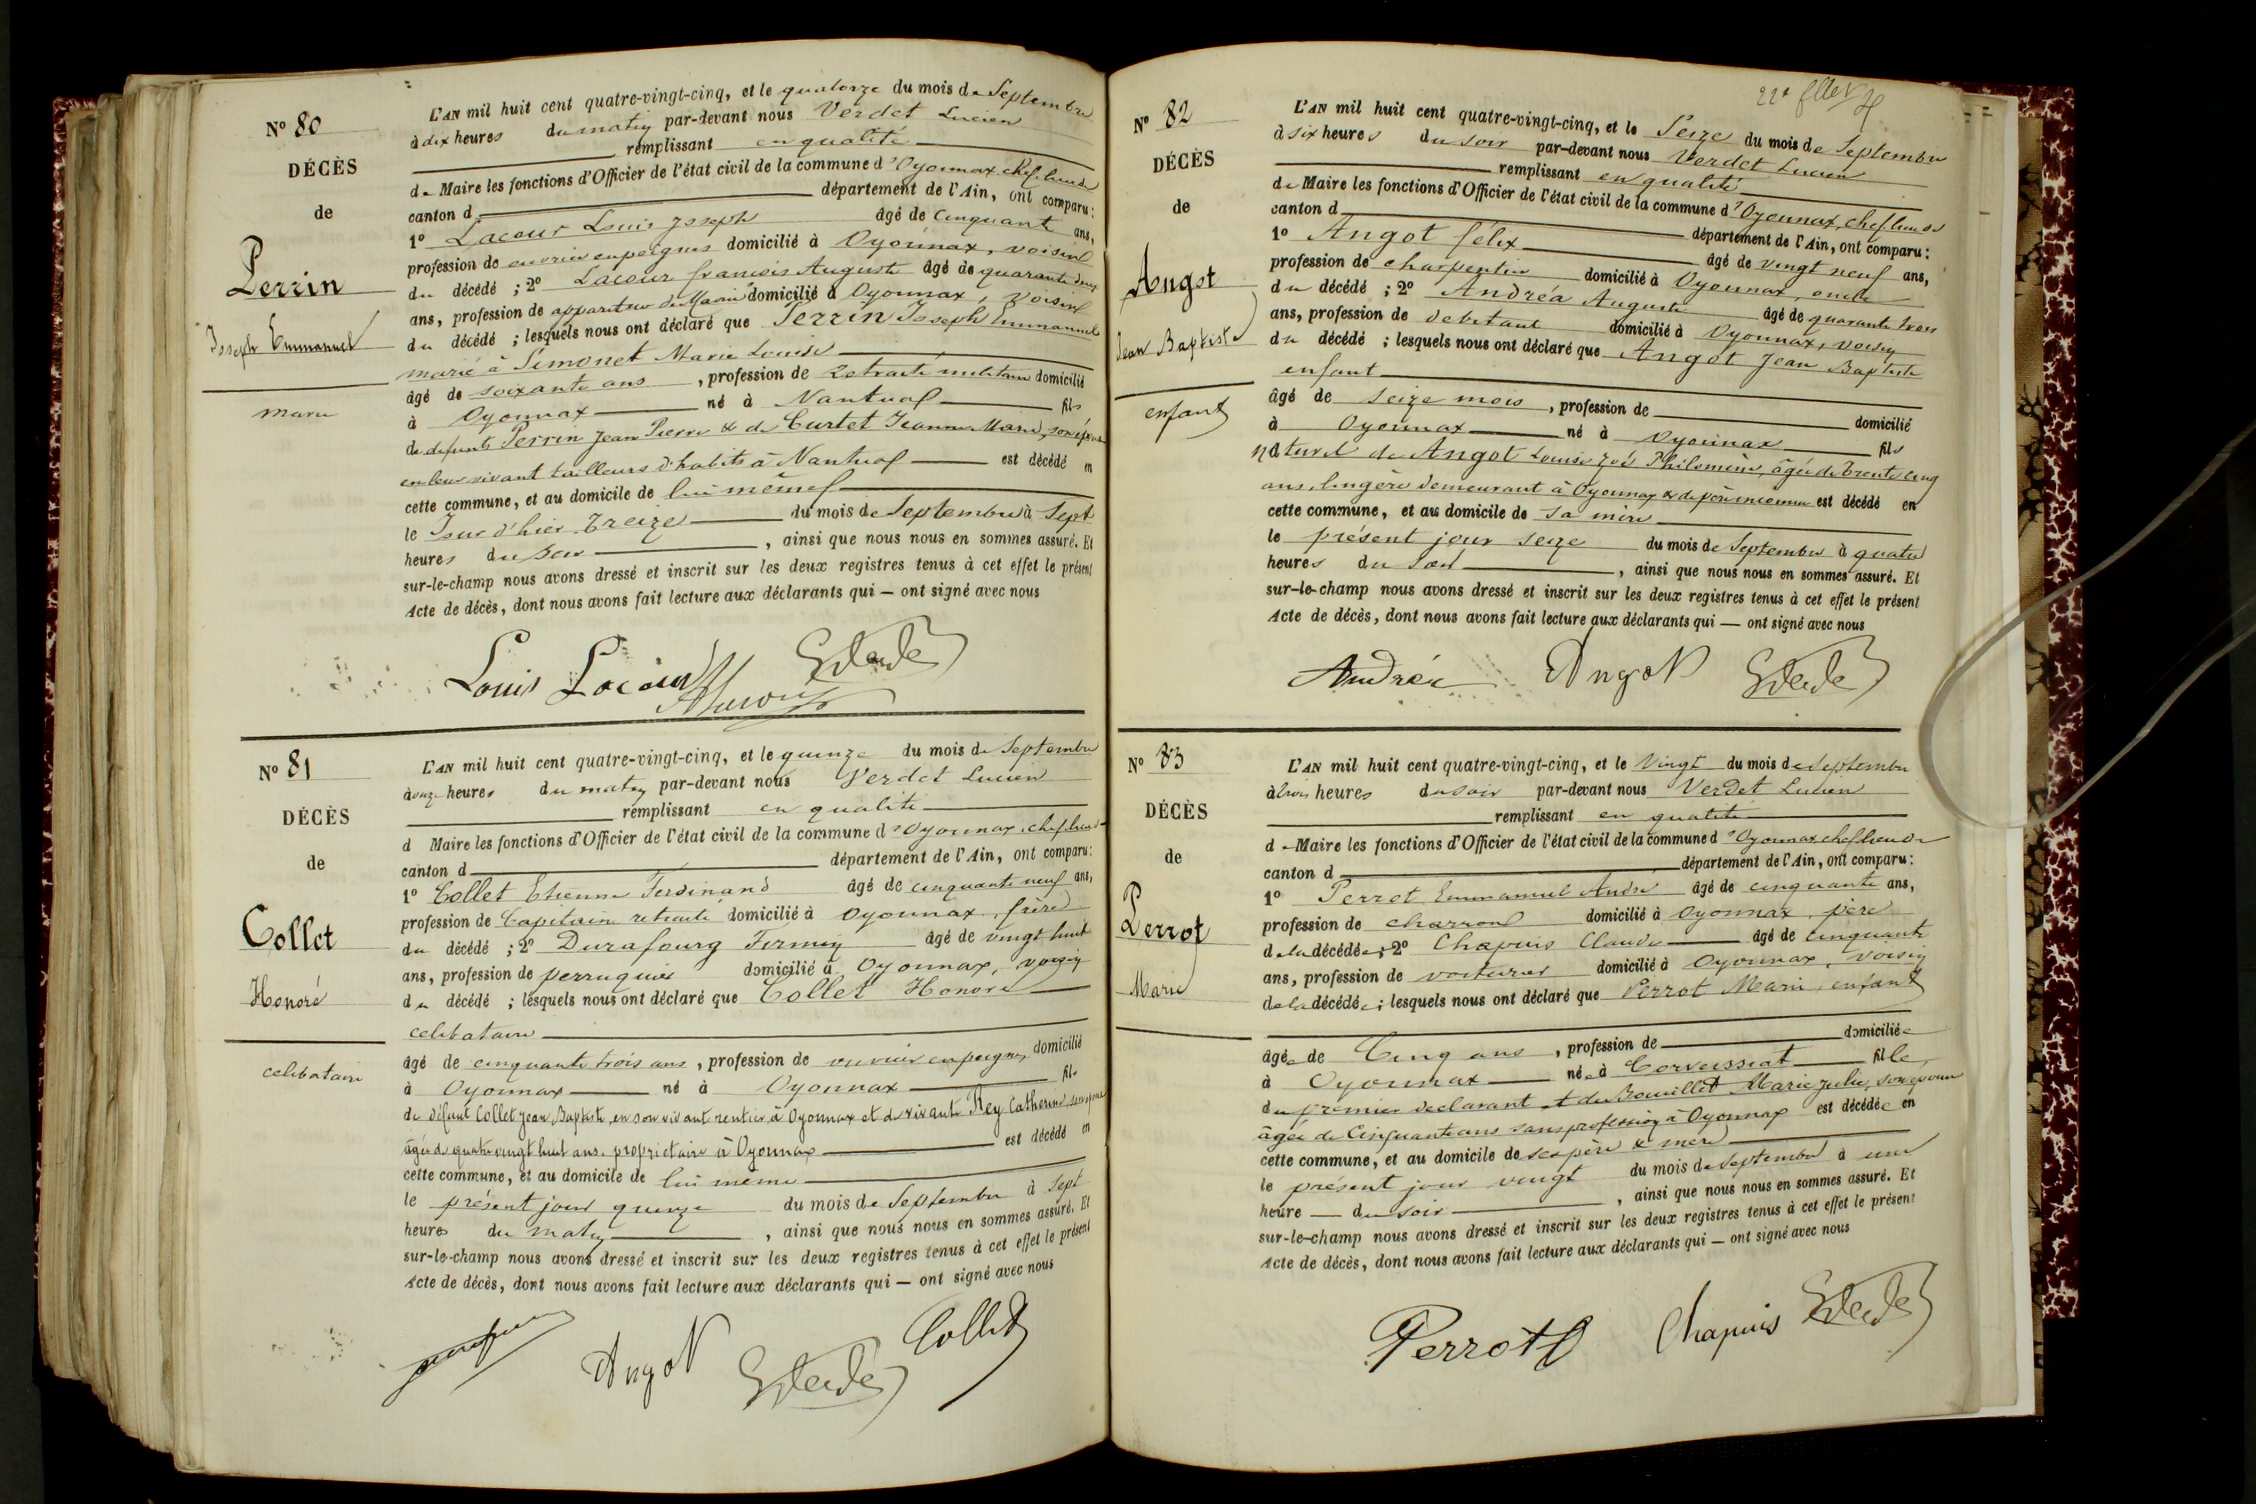 Nº 80
DÉCÈS
de
Perrin
Joseph Emmanuel
marié
L'AN mil huit cent quatre-vingt-cinq, et le quatorze du mois de Septembre
à dix heures du matin par-devant nous Verdet Lucien
remplissant en qualité
de Maire les fonctions d'Officier de l'état civil de la commune d'Oyonnax chef lieu de
canton d département de l'Ain, ont comparu :
1º Lacour Louis Joseph âgé de cinquante ans,
profession de ouvrier en peignes domicilié à Oyonnax, voisin
du décédé ; 2º Lacour françois Auguste âgé de quarante deux
ans, profession de appariteur de Mairie domicilié à Oyonnax, voisin
du décédé ; lesquels nous ont déclaré que Perrin Joseph Emmanuel
marié à Simonet Marie Louise
âgé de soixante ans , profession de Retraité militaire domicilié
à Oyonnax né à Nantua fils
de défunts Perrin Jean Pierre & de Curtet Jeanne Marie, son épouse
en leur vivant tailleurs d'habits à Nantua est décédé en
cette commune, et au domicile de lui même
le Jour d'hier Treize du mois de Septembre à Sept
heures du soir , ainsi que nous nous en sommes assuré. Et
sur-le-champ nous avons dressé et inscrit sur les deux registres tenus à cet effet le présent
Acte de décès, dont nous avons fait lecture aux déclarants qui — ont signé avec nous
Louis Lacour
Nº 81
DÉCÈS
de
Collet
Honoré
celibataire
L'AN mil huit cent quatre-vingt-cinq, et le quinze du mois de Septembre
à onze heures du matin par-devant nous Verdet Lucien
remplissant en qualité
d Maire les fonctions d'Officier de l'état civil de la commune d'Oyonnax, chef lieu de
canton d département de l'Ain, ont comparu :
1º Collet Etienne Ferdinand âgé de cinquante neuf ans,
profession de Capitaine retraité domicilié à Oyonnax, frère
du décédé ; 2º Durafourg Firmin âgé de vingt huit
ans, profession de perruquier domicilié à Oyonnax, voisin
du décédé ; lesquels nous ont déclaré que Collet Honoré
celibataire
âgé de cinquante trois ans , profession de ouvrier en peignes domicilié
à Oyonnax né à Oyonnax fils
de défunt Collet Jean Baptiste, en son vivant rentier à Oyonnax et de vivante Rey Catherine, son épouse
âgée de quatre vingt huit ans, propriétaire à Oyonnax est décédé en
cette commune, et au domicile de lui même
le présent jour quinze du mois de Septembre à Sept
heures du matin , ainsi que nous nous en sommes assuré. Et
sur-le-champ nous avons dressé et inscrit sur les deux registres tenus à cet effet le présent
Acte de décès, dont nous avons fait lecture aux déclarants qui — ont signé avec nous
Angot Collet
Nº 82
DÉCÈS
de
Angot
Jean Baptiste
enfant
L'AN mil huit cent quatre-vingt-cinq, et le Seize du mois de Septembre
à six heures du soir par-devant nous Verdet Lucien
remplissant en qualité
de Maire les fonctions d'Officier de l'état civil de la commune d'Oyonnax, chef lieu de
canton d département de l'Ain, ont comparu :
1º Angot félix âgé de vingt neuf ans,
profession de charpentier domicilié à Oyonnax, oncle
du décédé ; 2º Andréa Auguste âgé de quarante trois
ans, profession de debitant domicilié à Oyonnax, voisin
du décédé ; lesquels nous ont déclaré que Angot Jean Baptiste
enfant
âgé de seize mois , profession de domicilié
à Oyonnax né à Oyonnax fils
naturel de Angot Louise Zoé Philomène, âgée de trente cinq
ans, lingère demeurant à Oyonnax & de père inconnu est décédé en
cette commune, et au domicile de sa mère
le présent jour seize du mois de Septembre à quatre
heures du soir , ainsi que nous nous en sommes assuré. Et
sur-le-champ nous avons dressé et inscrit sur les deux registres tenus à cet effet le présent
Acte de décès, dont nous avons fait lecture aux déclarants qui — ont signé avec nous
Andréa Angot
Nº 83
DÉCÈS
de
Perrot
Marie
L'AN mil huit cent quatre-vingt-cinq, et le Vingt du mois de Septembre
à trois heures du soir par-devant nous Verdet Lucien
remplissant en qualité
de Maire les fonctions d'Officier de l'état civil de la commune d'Oyonnax chef lieu de
canton d département de l'Ain, ont comparu :
1º Perrot Emmanuel André âgé de cinquante ans,
profession de charron domicilié à Oyonnax, père
de la décédée ; 2º Chapuis Claude âgé de cinquante
ans, profession de voiturier domicilié à Oyonnax, voisin
de la décédée ; lesquels nous ont déclaré que Perrot Marie, enfant
âgée de Cinq ans , profession de domiciliée
à Oyonnax née à Corveissiat fille
du premier déclarant et de Bouillet Marie Julie, son épouse
âgée de Cinquante ans sans profession à Oyonnax est décédée en
cette commune, et au domicile de ses père & mère
le présent jour vingt du mois de Septembre à une
heure — du soir , ainsi que nous nous en sommes assuré. Et
sur-le-champ nous avons dressé et inscrit sur les deux registres tenus à cet effet le présent
Acte de décès, dont nous avons fait lecture aux déclarants qui — ont signé avec nous
Perrot Chapuis